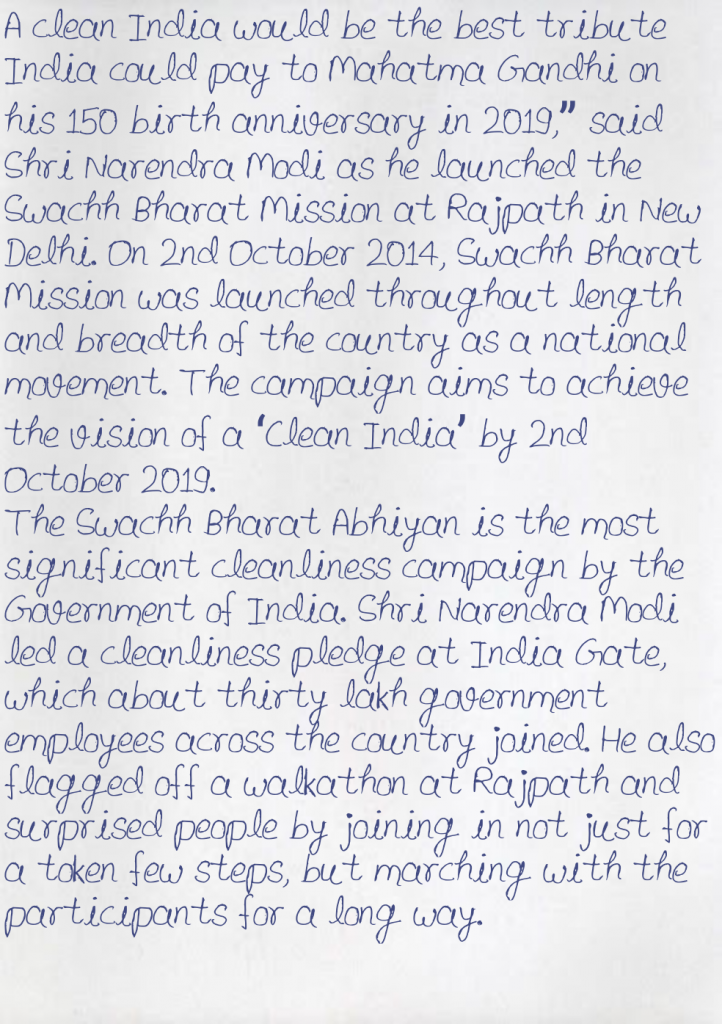 A clean India would be the best tribute
India could pay to Mahatma Gandhi on
his 150 birth anniversary in 2019,” said
Shri Narendra Modi as he launched the
Swachh Bharat Mission at Rajpath in New
Delhi. On 2nd October 2014, Swachh Bharat
Mission was launched throughout length
and breadth of the country as a national
movement. The campaign aims to achieve
the vision of a ‘Clean India’ by 2nd
October 2019.
The Swachh Bharat Abhiyan is the most
significant cleanliness campaign by the
Government of India. Shri Narendra Modi
led a cleanliness pledge at India Gate,
which about thirty lakh government
employees across the country joined. He also
flagged off a walkathon at Rajpath and
surprised people by joining in not just for
a token few steps, but marching with the
participants for a long way.